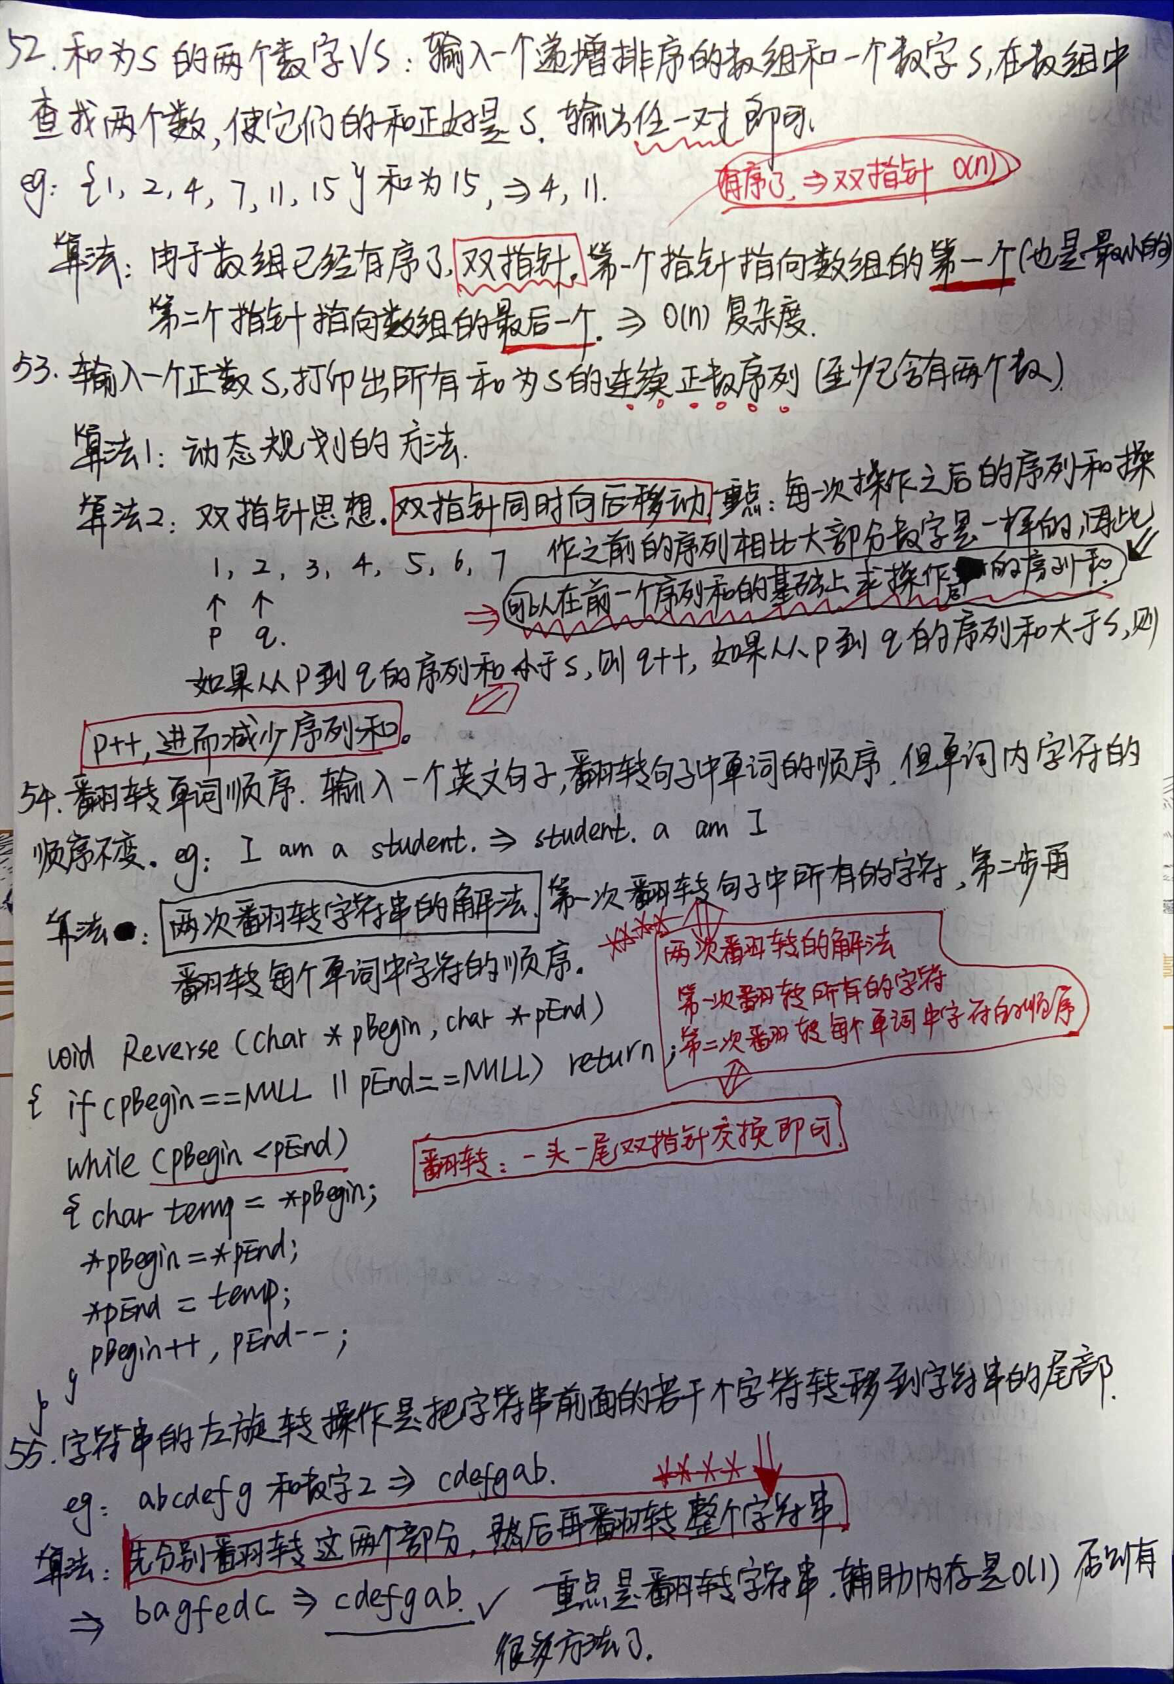 52. 和为S的两个数字VS: 输入一个递增排序的数组和一个数字S,在数组中
查找两个数,使它们的和正好是S. 输出任一对即可.
eg: {1, 2, 4, 7, 11, 15}和为15, ⇒ 4, 11.
有序了, ⇒ 双指针 O(n)
算法: 由于数组已经有序了,双指针,第一个指针指向数组的第一个(也是最小的)
第二个指针指向数组的最后一个. ⇒ O(n)复杂度.
53. 输入一个正数S,打印出所有和为S的连续正数序列(至少包含有两个数)
算法1: 动态规划的方法.
算法2: 双指针思想.双指针同时向后移动,重点:每一次操作之后的序列和操
作之前的序列相比大部分数字是一样的,因此
1, 2, 3, 4, 5, 6, 7
⇒ 可以在前一个序列和的基础上求操作后的序列和.
↑ ↑
p q.
如果从p到q的序列和小于S,则q++,如果从p到q的序列和大于S,则
p++,进而减少序列和。
54. 翻转单词顺序. 输入一个英文句子,翻转句子中单词的顺序,但单词内字符的
顺序不变。eg: I am a student. ⇒ student. a am I
算法: 两次翻转字符串的解法.第一次翻转句子中所有的字符,第二步再
翻转每个单词中字符的顺序。
两次翻转的解法
第一次翻转所有的字符
第二次翻转每个单词中字符的顺序
void Reverse (char * pBegin, char * pEnd)
{ if (pBegin==NULL || pEnd==NULL) return;
翻转: 一头一尾双指针交换即可.
while (pBegin < pEnd)
{ char temp = *pBegin;
*pBegin = *pEnd;
*pEnd = temp;
pBegin++, pEnd--;
}
}
55. 字符串的左旋转操作是把字符串前面的若干个字符转移到字符串的尾部.
eg: abcdefg 和数字2 ⇒ cdefgab.
算法: 先分别翻转这两个部分,然后再翻转整个字符串
⇒ bagfedc ⇒ cdefgab. ✓ 重点是翻转字符串.辅助内存是O(1) 否则有
很多方法了.